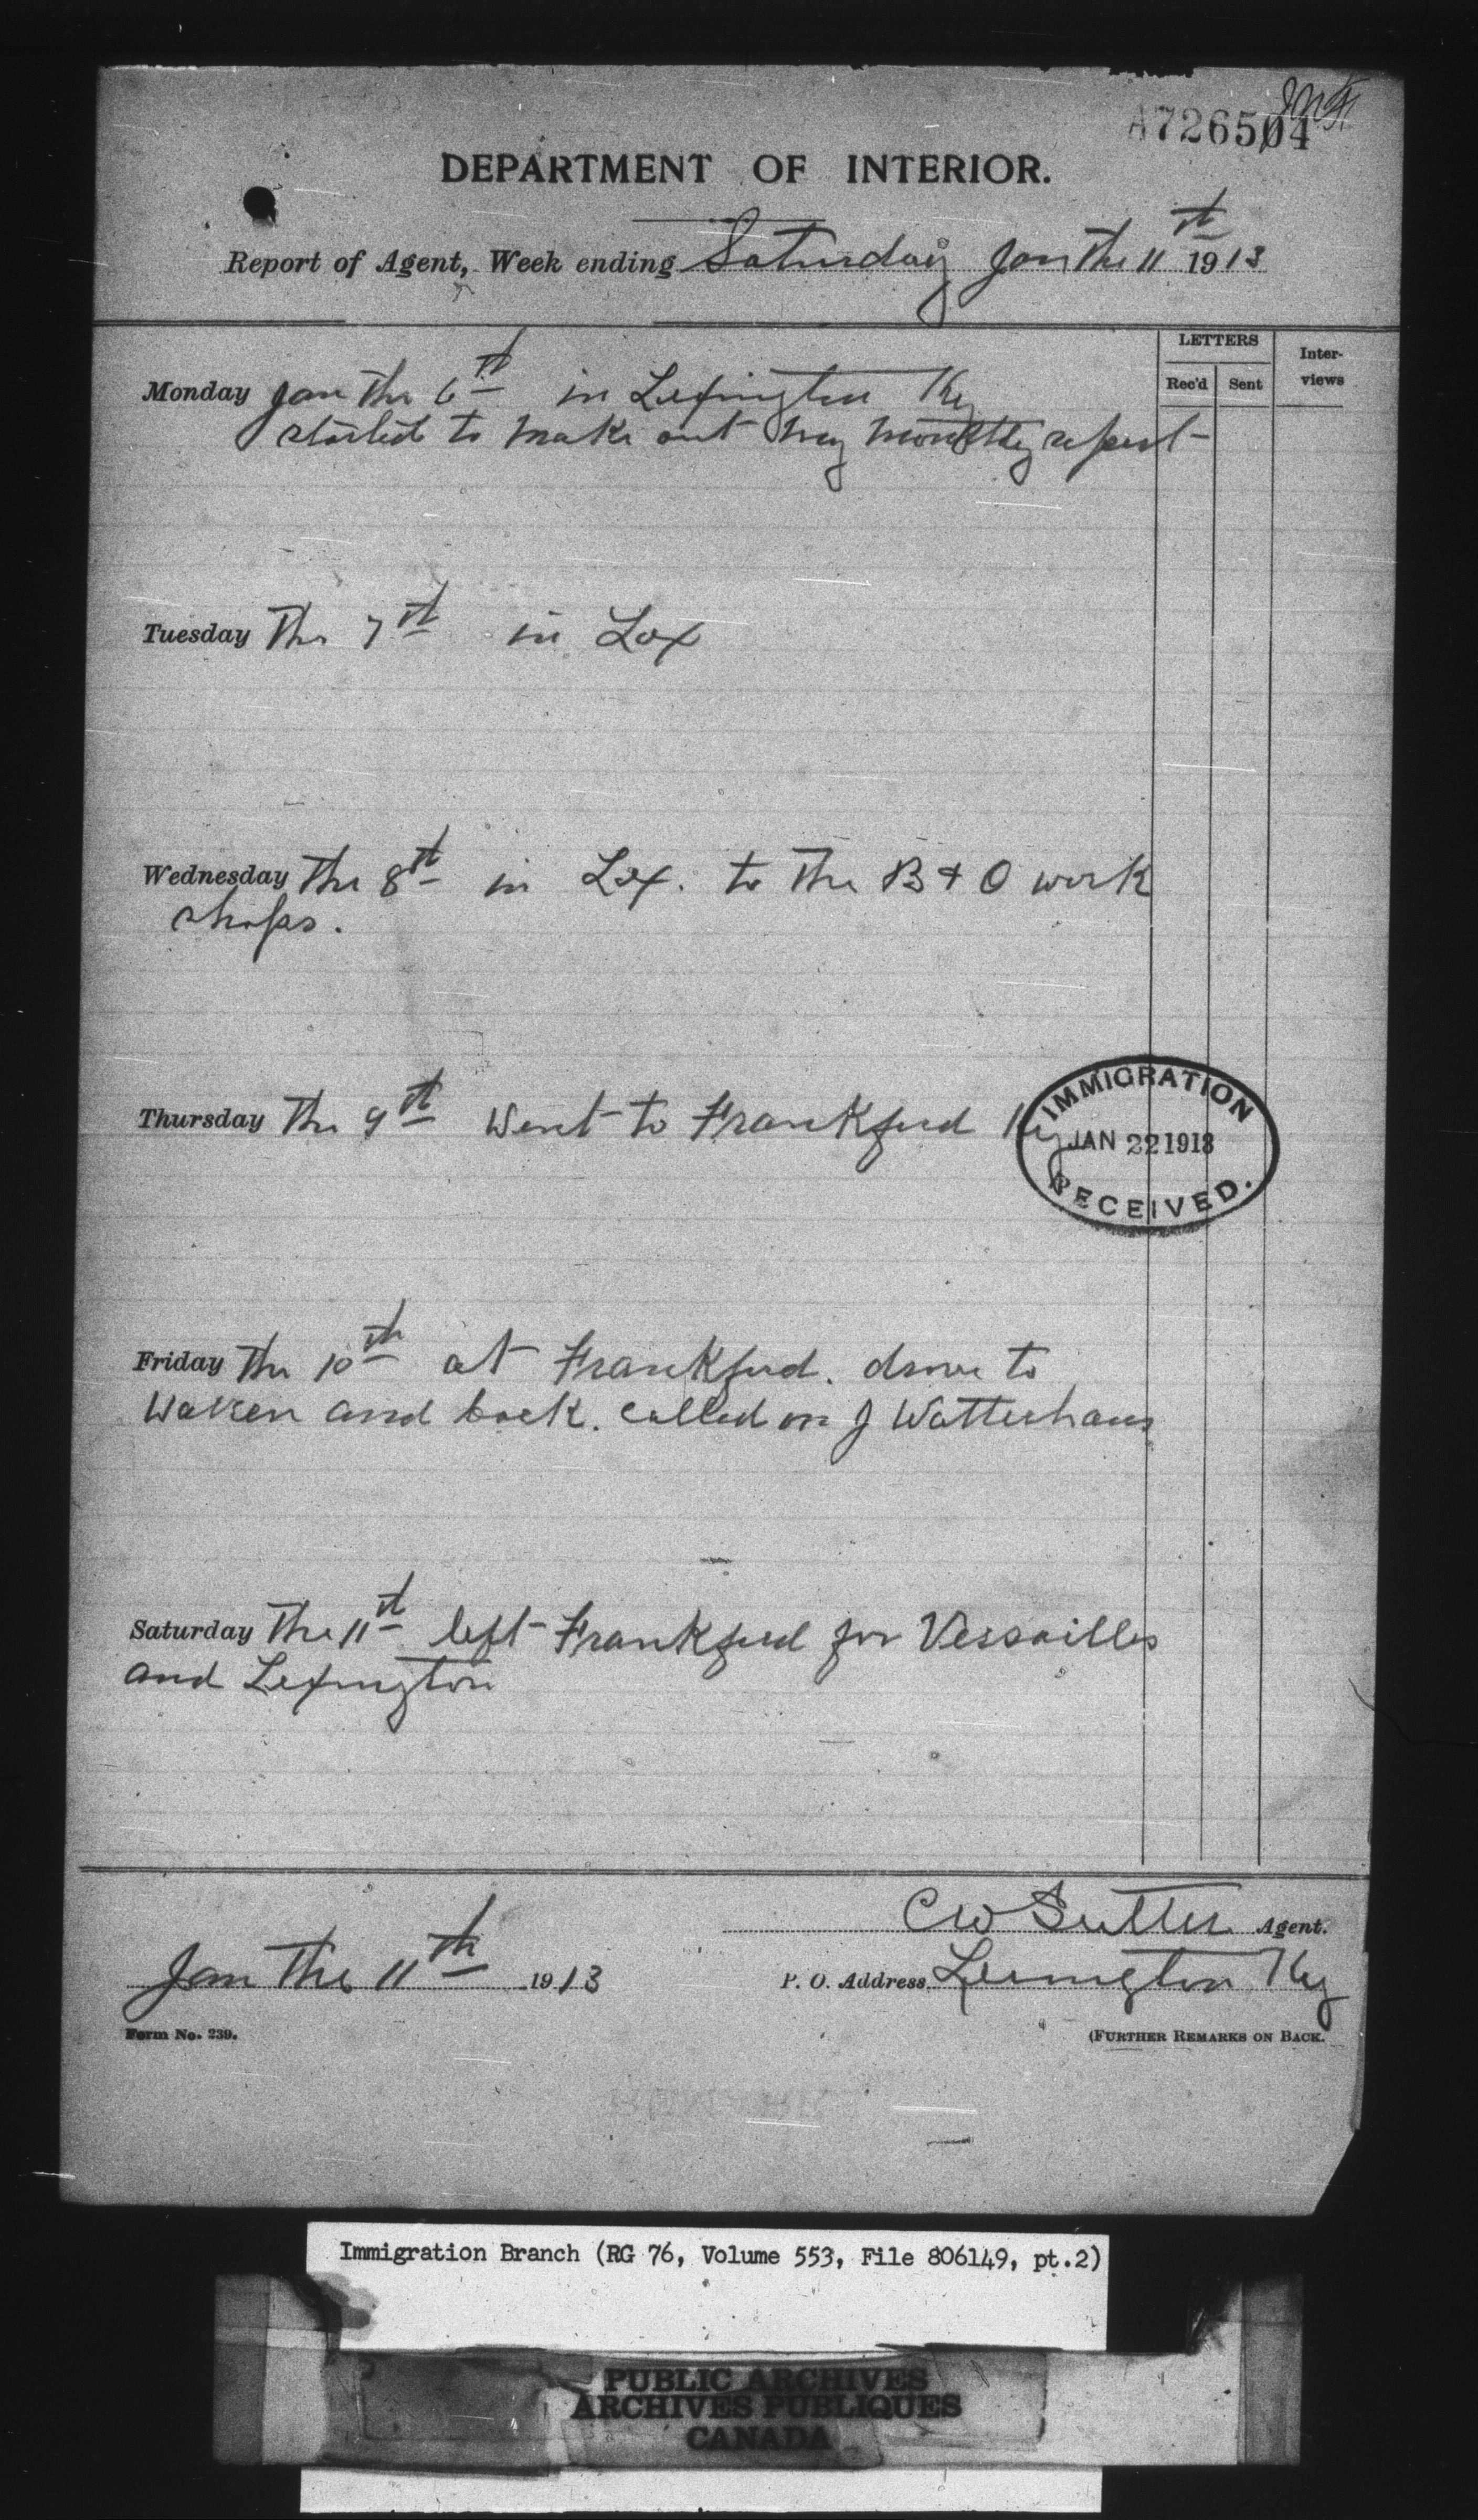 A726504
DEPARTMENT OF INTERIOR.
Report of Agent, Week ending Saturday Jan the 11 st 1913
LETTERS
Inter-
views
Rec'd Sent
Monday Jan the 6 st in Lexington Ky
started to make out my monthly report
Tuesday The 7 st in Lex
Wednesday The 8 st in Lex. to the B & O work
shops.
Thursday The 9 st Went to Frankfurd Ky
IMMIGRATION
JAN 22 1913
RECEIVED.
Friday The 10 th at Frankfurd. drove to
and back. called on J Watterhaus
Saturday The 11 st left Frankfurd for Versailles
and Lexington
C W Sutter Agent.
Jan The 11 th 1913
P. O. Address Lexington Ky
Form No. 239.
(FURTHER REMARKS ON BACK.
Immigration Branch (RG 76, Volume 553, File 806149, pt.2)
PUBLIC ARCHIVES
ARCHIVES PUBLIQUES
CANADA